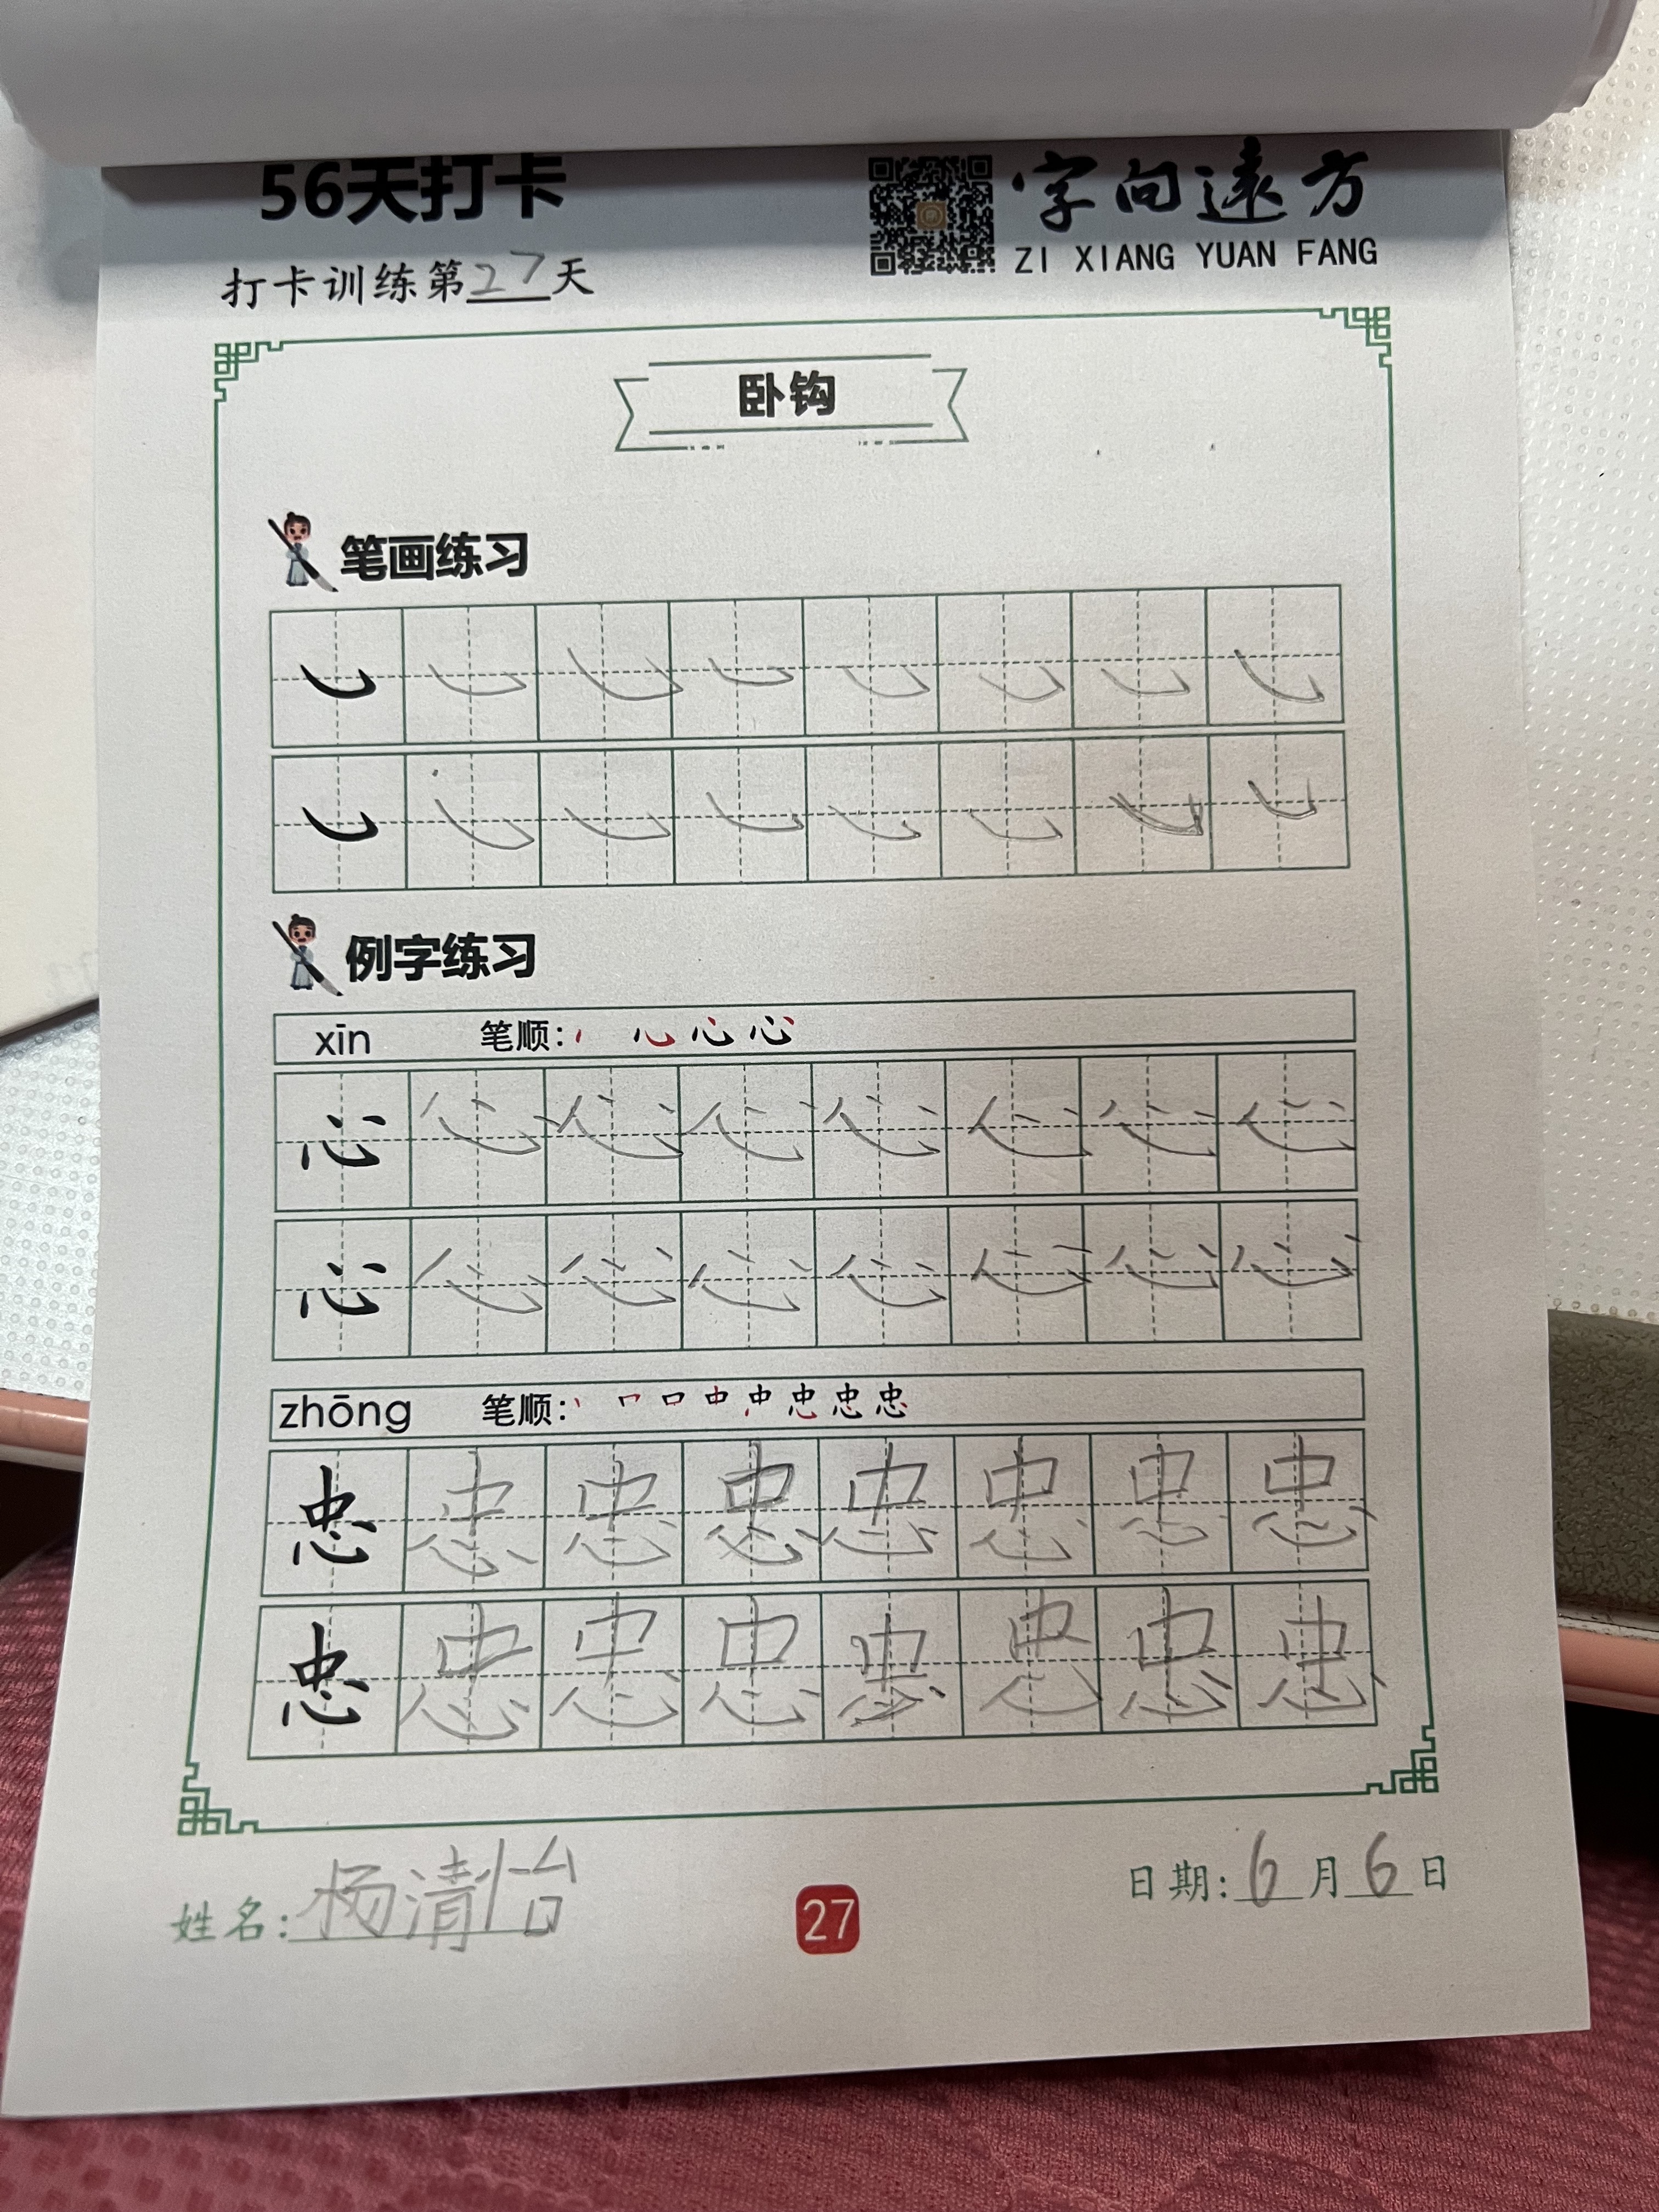 56天打卡
字向遠方
ZI XIANG YUAN FANG
打卡训练第27天
卧钩
笔画练习
例字练习
xīn 笔顺:
心 心 心 心 心 心 心 心
心 心 心 心 心 心 心 心
zhōng 笔顺:
忠 忠 忠 忠 忠 忠 忠 忠
忠 忠 忠 忠 忠 忠 忠 忠
姓名:杨清怡
27
日期:6月6日